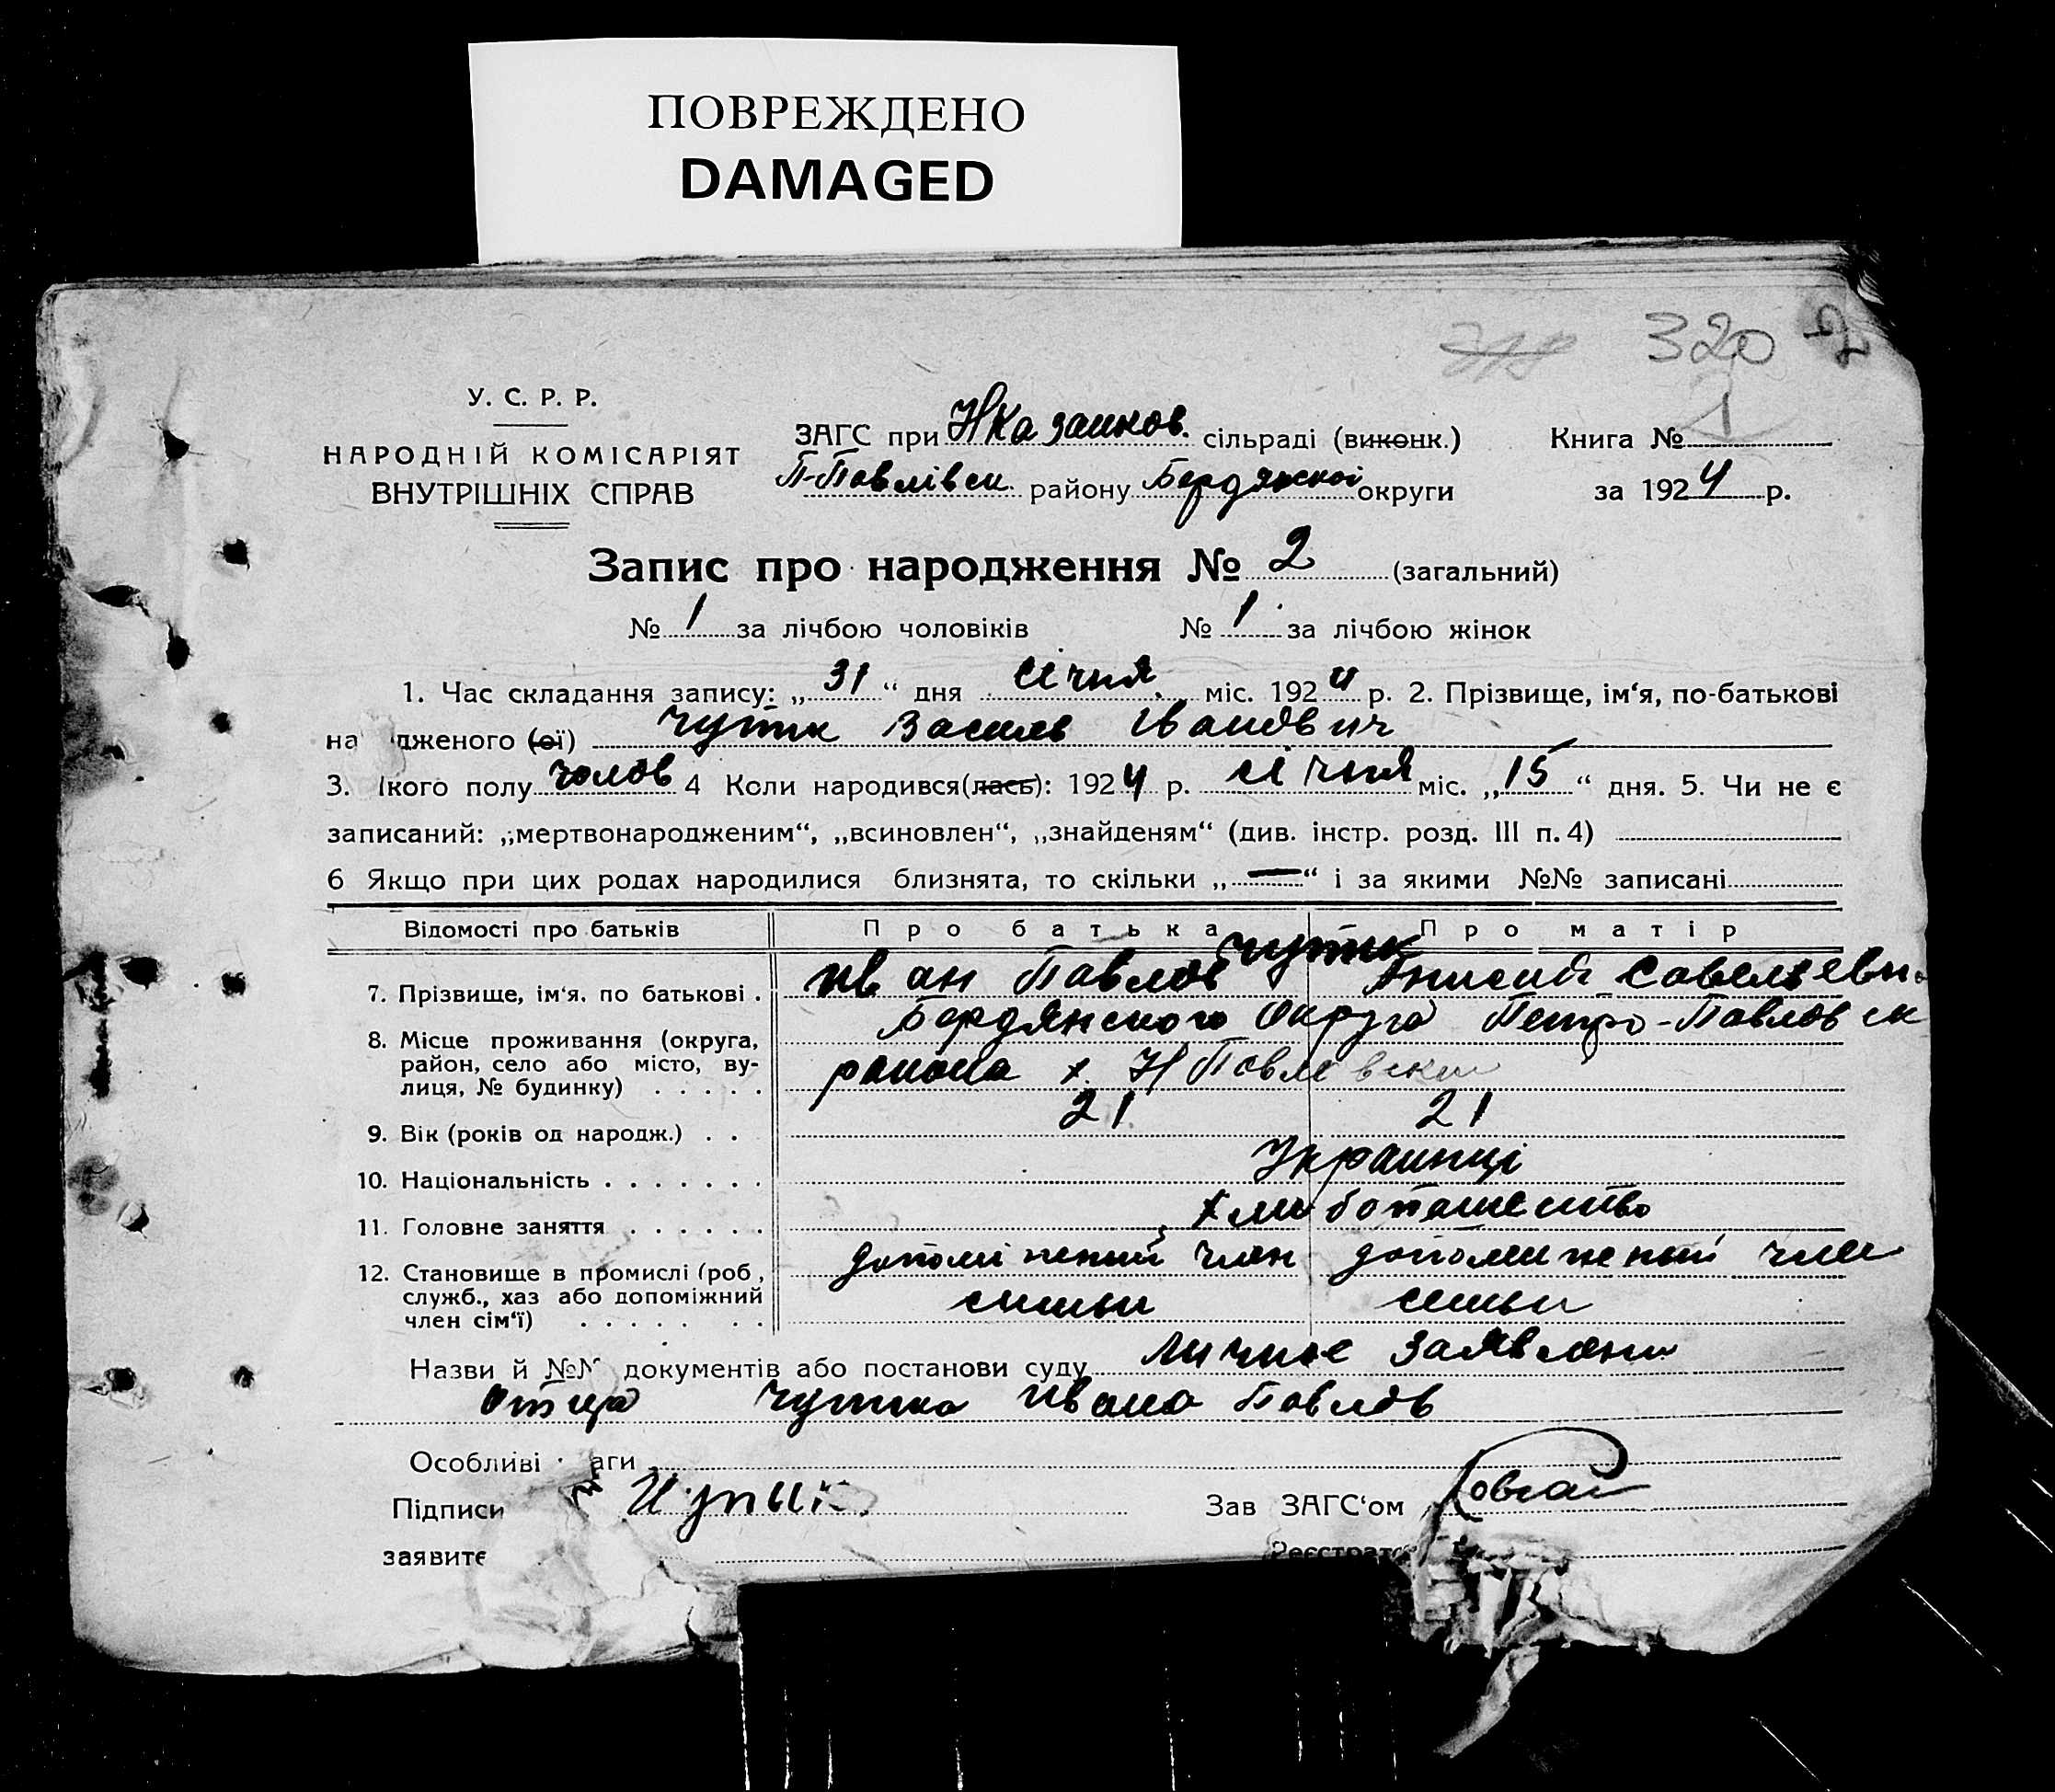 ПОВРЕЖДЕНО
DAMAGED
320
У. С. Р. Р.
НАРОДНІЙ КОМІСАРІЯТ
ВНУТРІШНІХ СПРАВ
ЗАГС при НКазанков. сільраді (виконк.) Книга № 1
П-Павлівск. району Бердянской округи за 1924 р.
Запис про народження № 2 (загальний)
№ 1 за лічбою чоловіків № 1 за лічбою жінок
1. Час складання запису: „31“ дня січня міс. 1924 р. 2. Прізвище, ім‘я, по-батькові
на дженого (ої) Чутк Василь Іванович
3. кого полу чолов 4 Коли народився(лась): 1924 р. січня міс. „15“ дня. 5. Чи не є
записаний: „мертвонародженим“, „всиновлен“, „знайденям“ (див. інстр. розд. III п. 4)
6 Якщо при цих родах народилися близнята, то скільки „—“ і за якими №№ записані
Відомості про батьків Про батька Про матір
Чутк
7. Прізвище, ім‘я, по батькові . Иван Павлов Анисия Савельевн
8. Місце проживання (округа, район, село або місто, вулиця, № будинку) Бердянского Округа Петро-Павловск
района х. Н Павловский
9. Вік (років од народж.) . . 21 21
10. Національність . . . . . . . Украинці
11. Головне заняття . . . . . . Хлибопашество
12. Становище в промислі (роб, служб., хаз або допоміжний член сім‘ї) допоміжний член допомижний член
семьи семьи
Назви й №№ документів або постанови суду Личное заявлени
Отца Чутка Ивана Павлов
Особливі аги
Підписи Зав ЗАГС‘ом
заявите Реєстрато